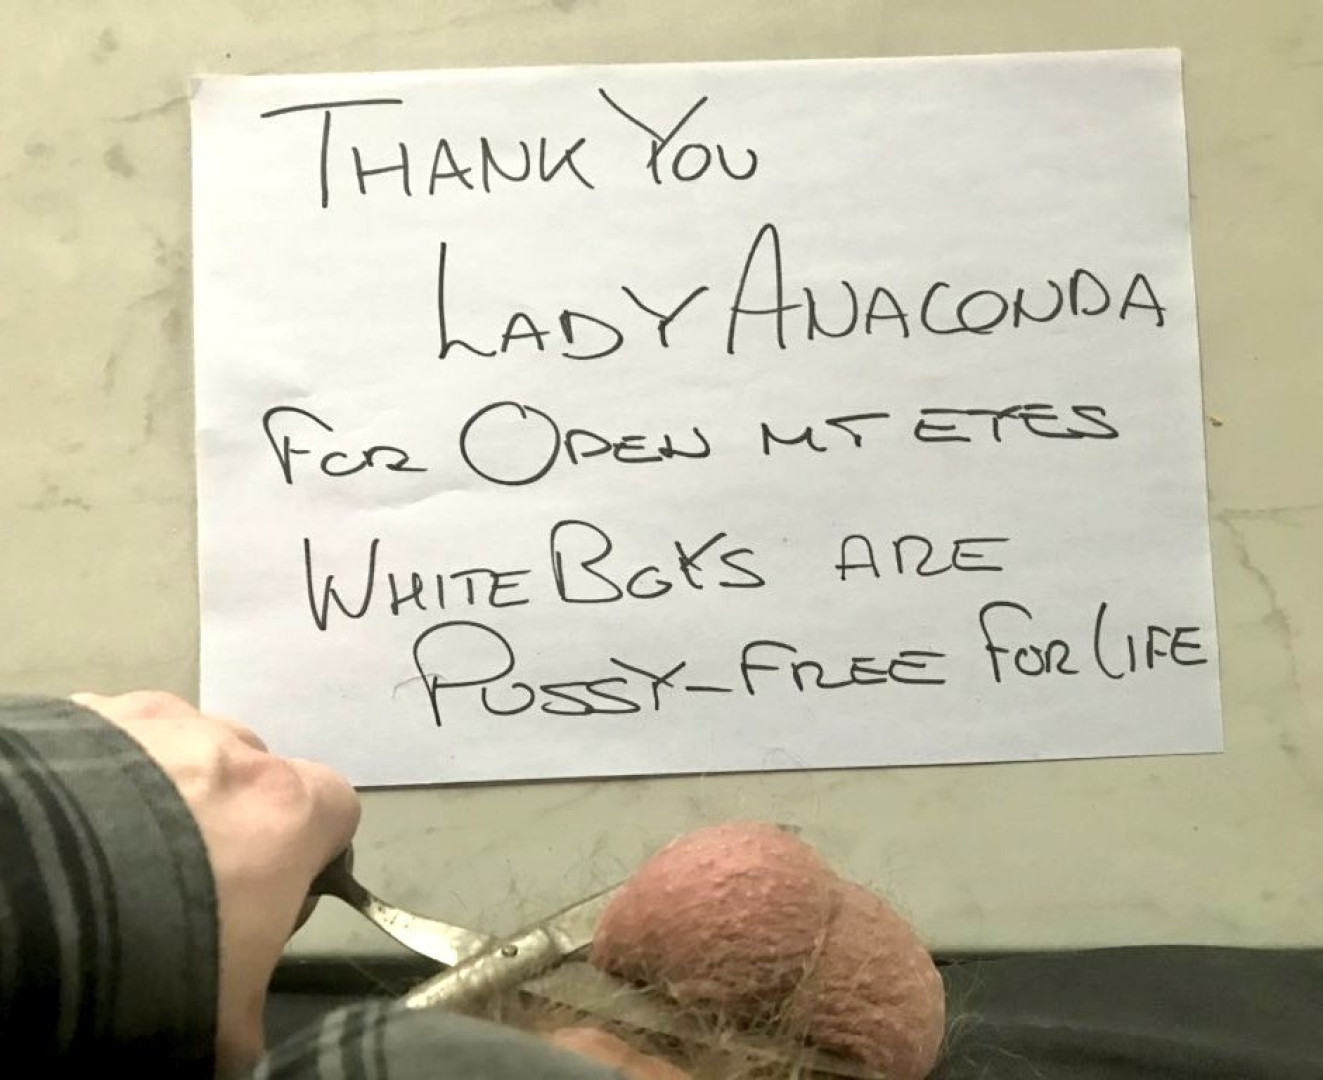 THANK YOU
LADY ANACONDA
FOR OPEN MY EYES
WHITE BOYS ARE
PUSSY-FREE FOR LIFE